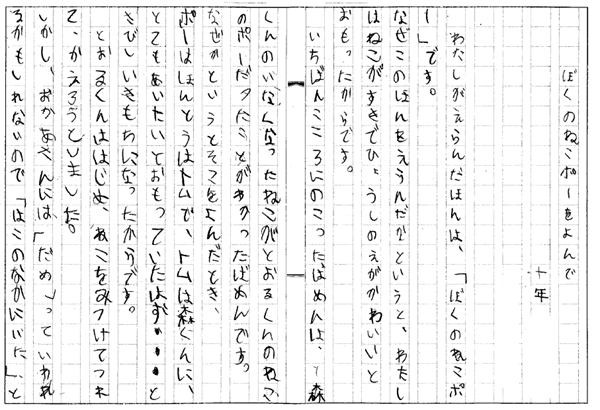 ぼくのねこポーをよんで
十年
わたしがえらんだほんは、「ぼくのねこポ
ー」です。
なぜこのほんをえらんだかというと、わたし
はねこがすきでひょうしのえががかわいいと
おもったからです。
いちばんこころにのこったばめんは、森
くんのいなくなったねこがとおるくんのねこ
のポーだったことがわかったばめんです。
なぜかというとそこをよんだとき、
ポーはほんとうはトムで、トムは森くんに、
とてもあいたいとおもっていたはず・・・と
さびしいきもちになったからです。
とおるくんははじめ、ねこをみつけてつれ
て、かえろうとしました。
しかし、おかあさんには、「だめ」っていわれ
るかもしれないので「はこのなかにいた」と